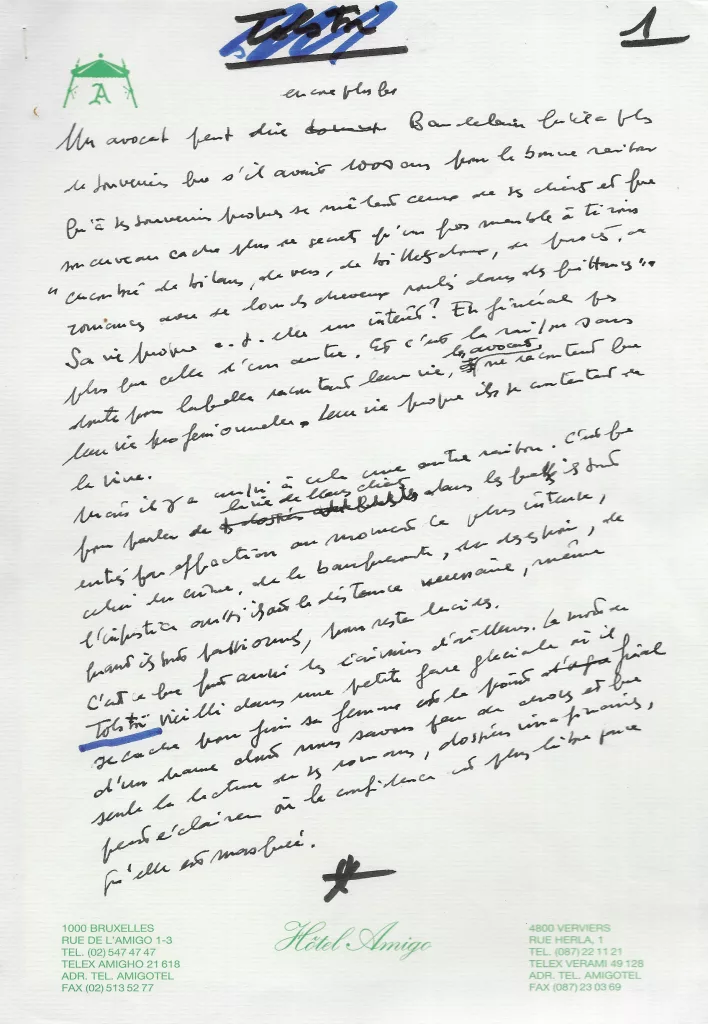 Tolstoï
1
encore plus que
A
Un avocat peut dire comme Baudelaire qu'il a plus
de souvenirs que s'il avait 1000 ans pour la bonne raison
qu'à ses souvenirs propres se mêlent ceux de ses clients et que
son cerveau cache plus de secrets qu'un gros meuble à tiroirs
"encombré de bilans, de vers, de billets doux, de procès, de
romances avec de lourds cheveux roulés dans des quittances".
Sa vie propre a-t-elle un intérêt? En général pas
plus que celle d'un autre. Et c'est la raison sans
doute pour laquelle racontant leur vie, les avocats ne racontent que
leur vie professionnelle. Leur vie propre ils se contentent de
la vivre.
Mais il y a aussi à cela une autre raison. C'est que
pour parler de la vie de leurs clients dans laquelle ils sont
entrés par effraction au moment le plus intense,
celui du crime, de la banqueroute, du désespoir, de
l'injustice aussi ils ont la distance nécessaire, même
quand ils sont passionnés, pour rester lucides.
C'est ce que font aussi les écrivains d'ailleurs. La mort de
Tolstoï vieilli dans une petite gare glaciale où il
se cache pour fuir sa femme est le point final
d'un drame dont nous savons peu de choses et que
seule la lecture de ses romans, dossiers imaginaires,
peut éclairer où la confidence est plus libre parce
qu'elle est masquée.
1000 BRUXELLES
RUE DE L'AMIGO 1-3
TEL. (02) 547 47 47
TELEX AMIGHO 21 618
ADR. TEL. AMIGOTEL
FAX (02) 513 52 77
Hôtel Amigo
4800 VERVIERS
RUE HERLA, 1
TEL. (087) 22 11 21
TELEX VERAMI 49 128
ADR. TEL. AMIGOTEL
FAX (087) 23 03 69